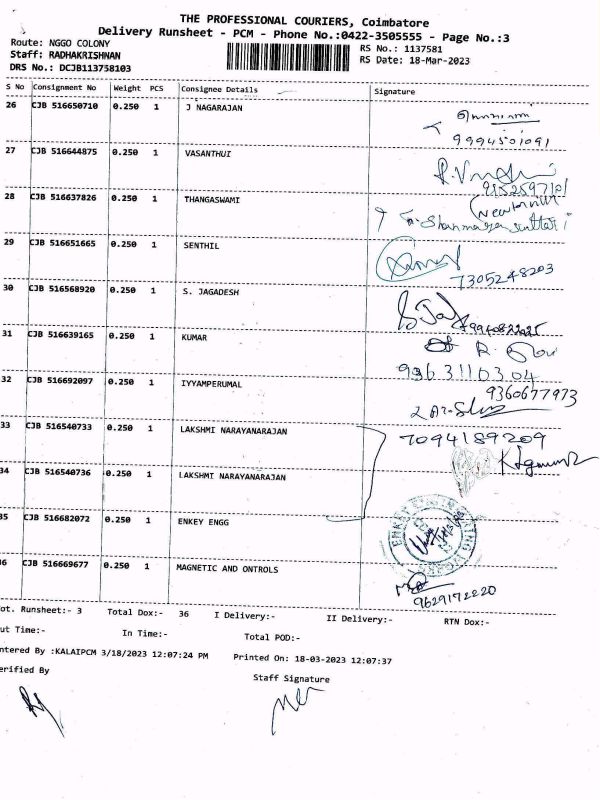 THE PROFESSIONAL COURIERS, Coimbatore
Delivery Runsheet - PCM - Phone No.:0422-3505555 - Page No.:3
Route: NGGO COLONY
RS No.: 1137581
Staff: RADHAKRISHNAN
RS Date: 18-Mar-2023
DRS No.: DCJB113758103
S No Consignment No Weight PCS Consignee Details Signature
26 CJB 516650710 0.250 1 J NAGARAJAN
9994501091
27 CJB 516644875 0.250 1 VASANTHUI
28 CJB 516637826 0.250 1 THANGASWAMI
29 CJB 516651665 0.250 1 SENTHIL
7305248203
30 CJB 516568920 0.250 1 S. JAGADESH
31 CJB 516639165 0.250 1 KUMAR
9363110304
32 CJB 516692097 0.250 1 IYYAMPERUMAL
9360677973
33 CJB 516540733 0.250 1 LAKSHMI NARAYANARAJAN
7094189209
34 CJB 516540736 0.250 1 LAKSHMI NARAYANARAJAN
35 CJB 516682072 0.250 1 ENKEY ENGG
36 CJB 516669677 0.250 1 MAGNETIC AND ONTROLS
9629172220
ot. Runsheet:- 3 Total Dox:- 36 I Delivery:- II Delivery:- RTN Dox:-
ut Time:- In Time:- Total POD:-
ntered By :KALAIPCM 3/18/2023 12:07:24 PM Printed On: 18-03-2023 12:07:37
erified By
Staff Signature